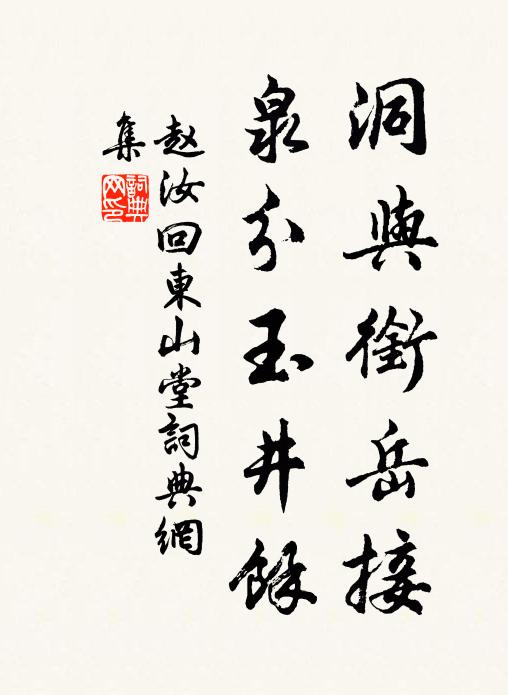 洞與衡岳接
泉分玉井餘
赵汝回東山堂詞典網
集
詞典网印